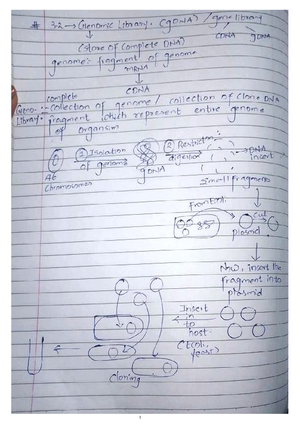 # 3.2 → Genomic Library. (gDNA) / gene library
cDNA gDNA
(Store of complete DNA)
genome:- fragment of genome
mRNA
CDNA
complete
Geno. :- collection of genome / collection of clone DNA
Library. fragment which represent entire genome
of organism
① Isolation
of genome
② Restriction
digestion
DNA
insert
gDNA
46
chromosomes
Small fragments
from E.coli
cut
plasmid
Now, insert the
fragment into
plasmid
Insert
in
to
host
(E.coli,
yeast)
cloning
1